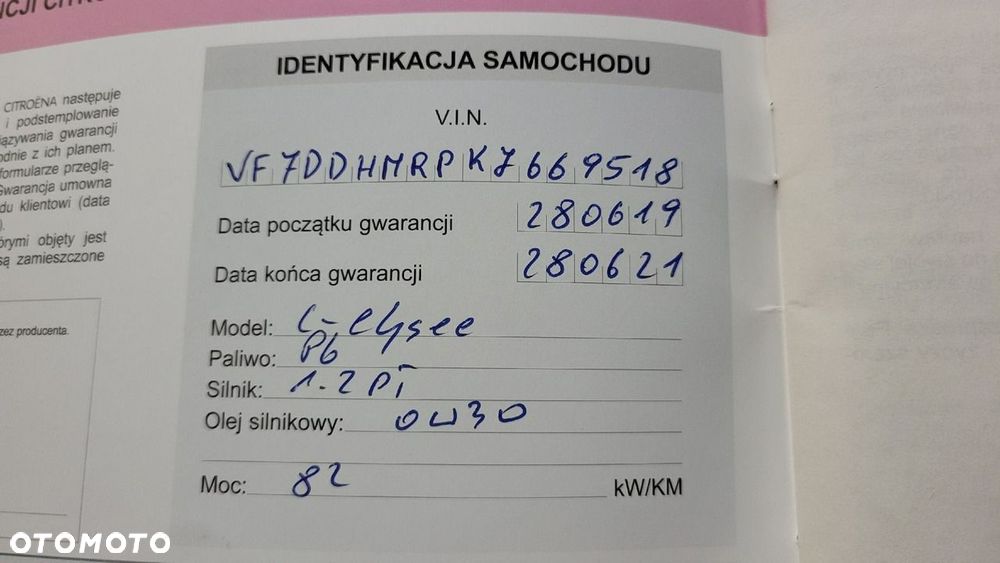 CJI CITRO
CITROËNA następuje
i podstemplowanie
iązywania gwarancji
odnie z ich planem.
formularze przeglą-
Gwarancja umowna
du klientowi (data
).
órymi objęty jest
są zamieszczone
zez producenta.
IDENTYFIKACJA SAMOCHODU
V.I.N.
VF7DDHMRPKJ669518
Data początku gwarancji 280619
Data końca gwarancji 280621
Model: C-elysee
Paliwo: Pb
Silnik: 1.2 PT
Olej silnikowy: 0W30
Moc: 82 kW/KM
OTOMOTO